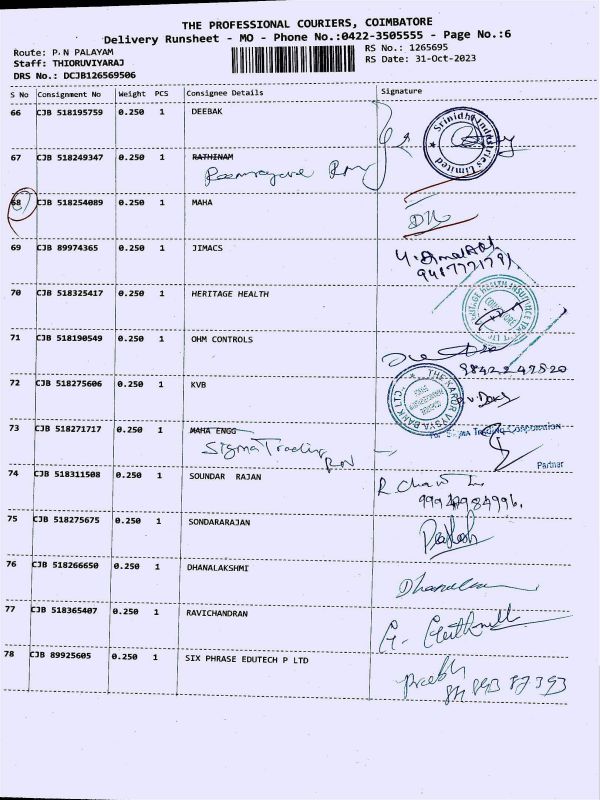 THE PROFESSIONAL COURIERS, COIMBATORE
Delivery Runsheet - MO - Phone No.:0422-3505555 - Page No.:6
Route: P.N PALAYAM
RS No.: 1265695
Staff: THIORUVIYARAJ
RS Date: 31-Oct-2023
DRS No.: DCJB126569506
S No Consignment No Weight PCS Consignee Details Signature
66 CJB 518195759 0.250 1 DEEBAK
Srinidhi Industries Limited
67 CJB 518249347 0.250 1 RATHINAM
68 CJB 518254089 0.250 1 MAHA
69 CJB 89974365 0.250 1 JIMACS
70 CJB 518325417 0.250 1 HERITAGE HEALTH
71 CJB 518190549 0.250 1 OHM CONTROLS
98422 47820
72 CJB 518275606 0.250 1 KVB
THE KARUR VYSYA BANK LTD.
73 CJB 518271717 0.250 1 MAHA ENGG
Sigma Trading
Partner
74 CJB 518311508 0.250 1 SOUNDAR RAJAN
9994984996.
75 CJB 518275675 0.250 1 SONDARARAJAN
76 CJB 518266650 0.250 1 DHANALAKSHMI
77 CJB 518365407 0.250 1 RAVICHANDRAN
78 CJB 89925605 0.250 1 SIX PHRASE EDUTECH P LTD